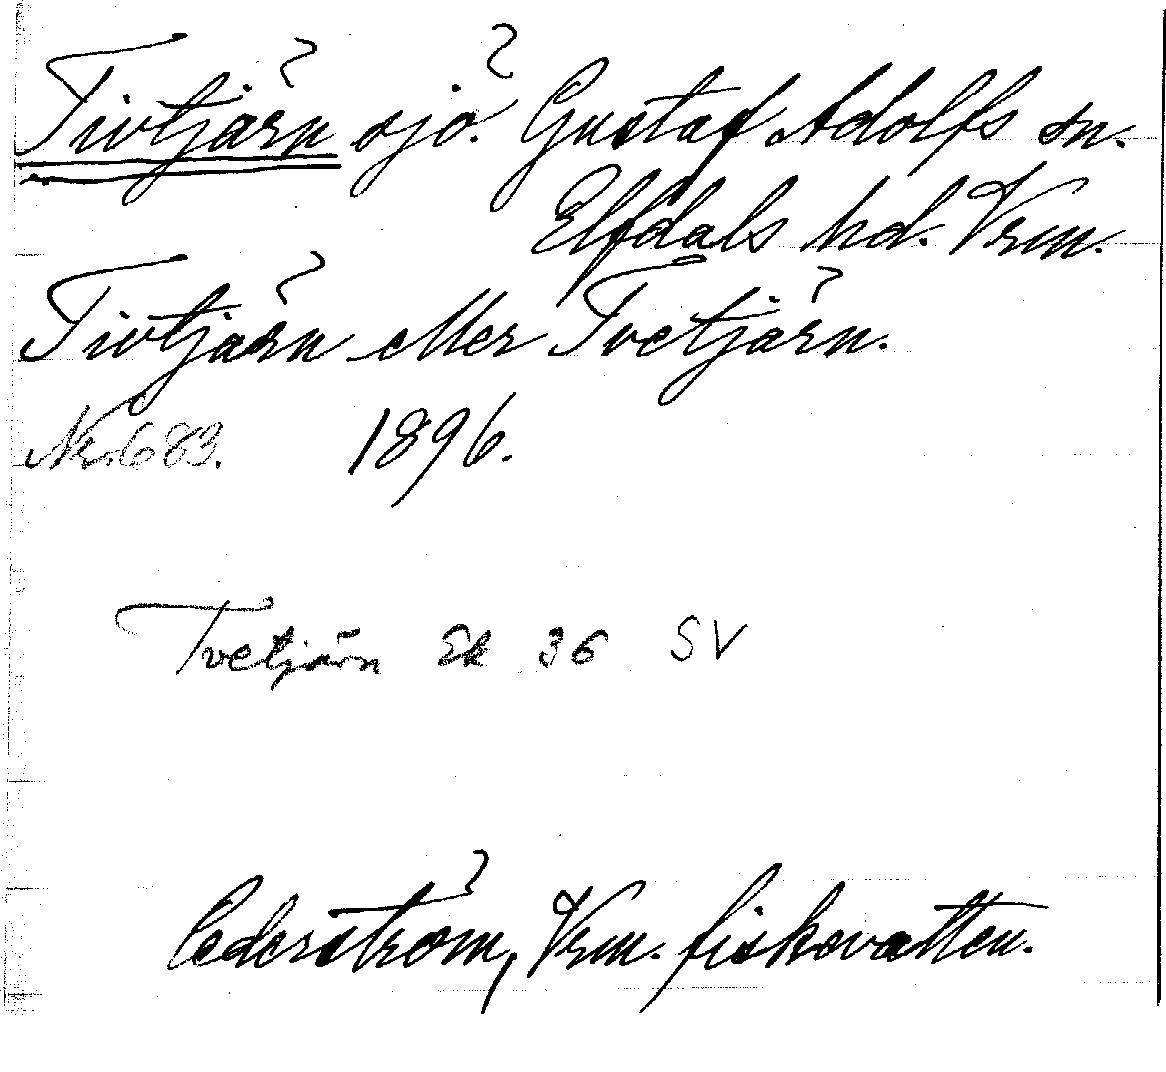 Tivtjärn sjö. Gustaf Adolfs sn.
Elfdals hd. Vrm.
Tivtjärn eller Tvetjärn.
Nr. 683. 1896.
Tvetjärn Ek 36 SV
Cederström, Vrm. fiskevatten.